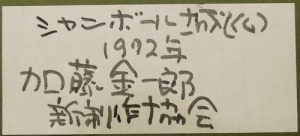 シャンボール城(仏)
1972年
加藤金一郎
新制作協会